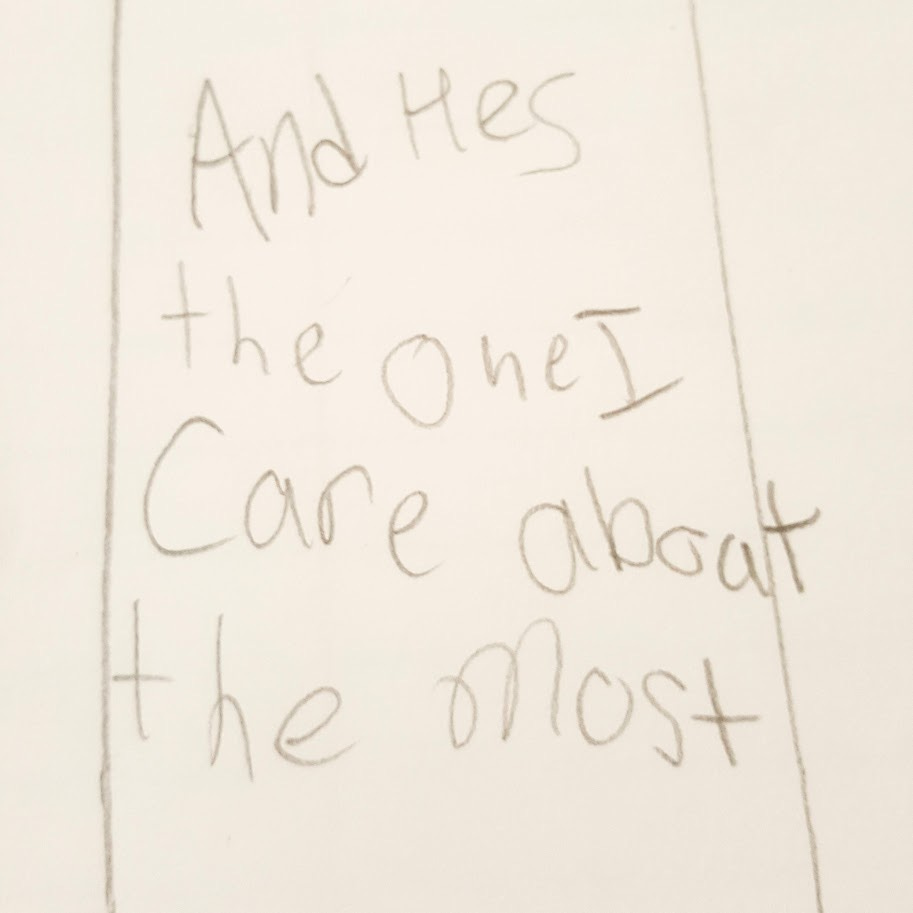 And Hes
the One I
Care about
the most